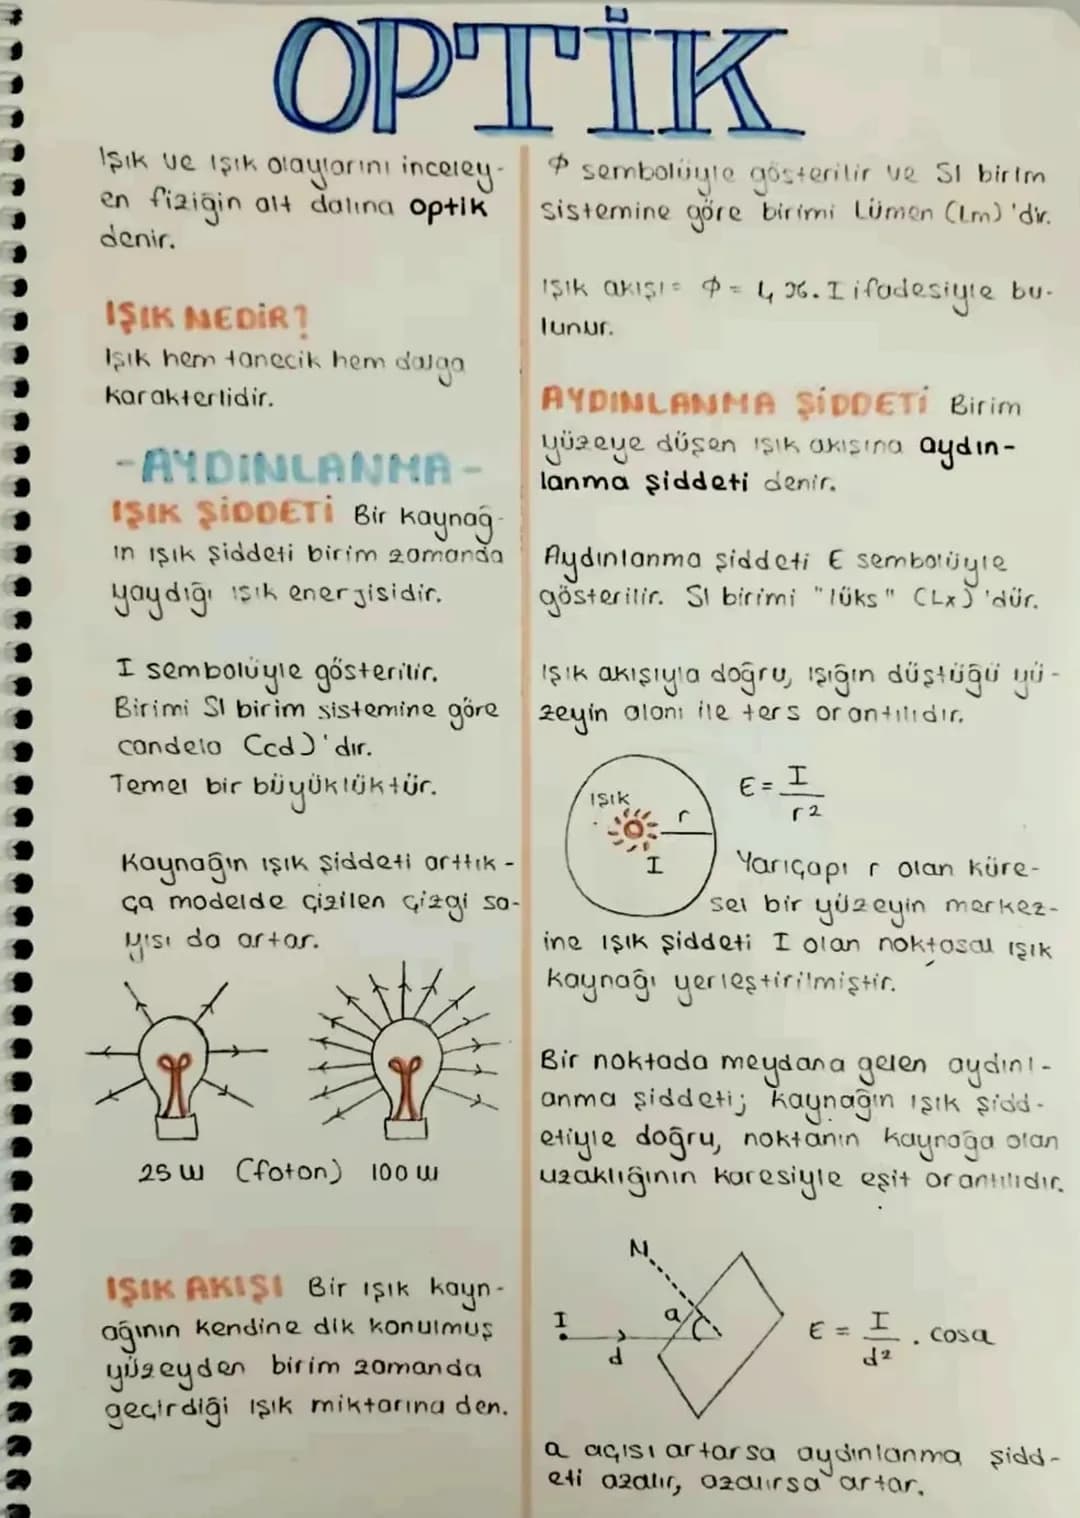 OPTİK
Işık ve ışık olaylarını inceley-
en fiziğin alt dalına optik
denir.
IŞIK NEDİR?
Işık hem tanecik hem dalga
karakterlidir.
-AYDINLANMA-
IŞIK ŞİDDETİ Bir kaynağ-
ın ışık şiddeti birim zamanda
yaydığı ışık enerjisidir.
I sembolüyle gösterilir.
Birimi SI birim sistemine göre
candela (cd)'dır.
Temel bir büyüklüktür.
Kaynağın ışık şiddeti arttık-
ça modelde çizilen çizgi sa-
yısı da artar.
25 W (foton) 100 W
IŞIK AKIŞI Bir ışık kayn-
ağının kendine dik konulmuş
yüzeyden birim zamanda
geçirdiği ışık miktarına den.
Φ sembolüyle gösterilir ve SI birim
sistemine göre birimi Lümen (Lm)'dir.
Işık akışı = Φ = 4π.I ifadesiyle bu-
lunur.
AYDINLANMA ŞİDDETİ Birim
yüzeye düşen ışık akısına aydın-
lanma şiddeti denir.
Aydınlanma şiddeti E sembolüyle
gösterilir. SI birimi "lüks" (Lx)'dür.
Işık akışıyla doğru, ışığın düştüğü yü-
zeyin alanı ile ters orantılıdır.
IŞIK
r
I
E = I / r²
Yarıçapı r olan küre-
sel bir yüzeyin merkez-
ine ışık şiddeti I olan noktasal ışık
kaynağı yerleştirilmiştir.
Bir noktada meydana gelen aydınl-
anma şiddeti; kaynağın ışık şidd-
etiyle doğru, noktanın kaynağa olan
uzaklığının karesiyle eşit orantılıdır.
N
I
a
d
E = I / d² . cosa
a açısı artarsa aydınlanma şidd-
eti azalır, azalırsa artar.